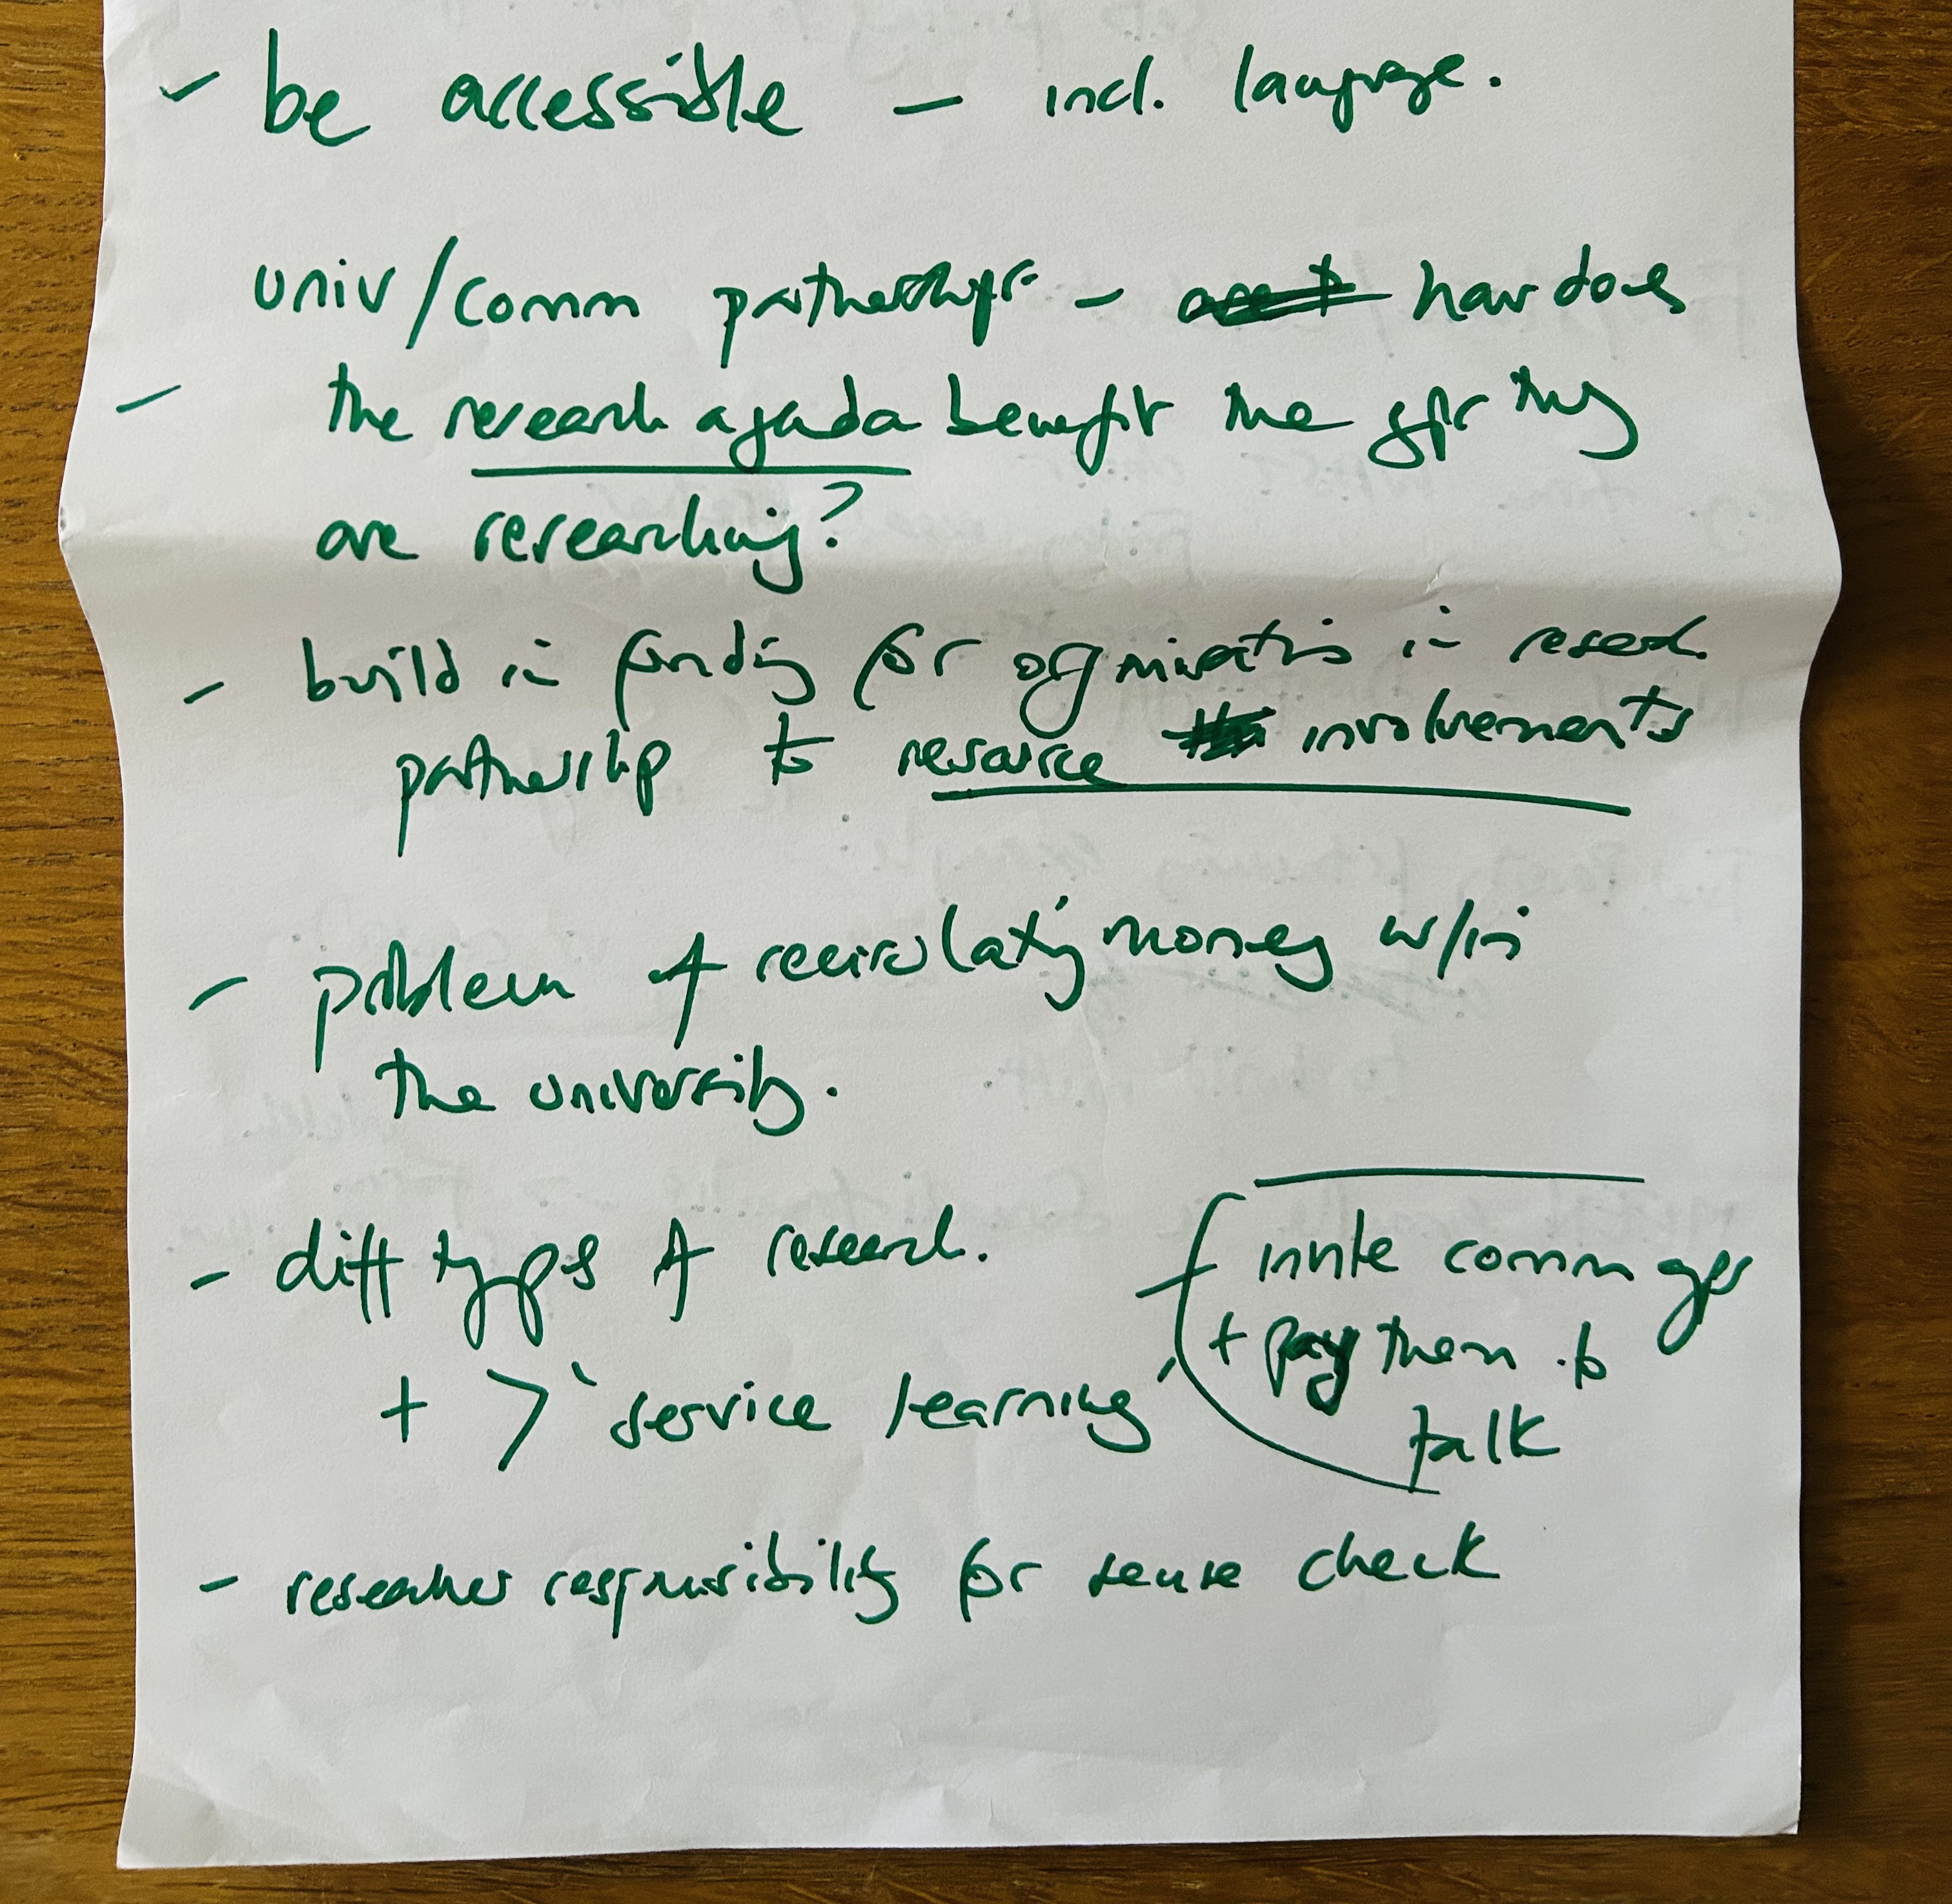 - be accessible - incl. language.
univ/comm partnerships - how does
- the research agenda benefit the gps they
are researching?
- build in funding for organisations in research
partnership to resource involvements
- problem of recirculating money w/in
the university.
- diff types of research.
+ > 'service learning'
invite comm gps
+ pay them to
talk
- researcher responsibility for sense check